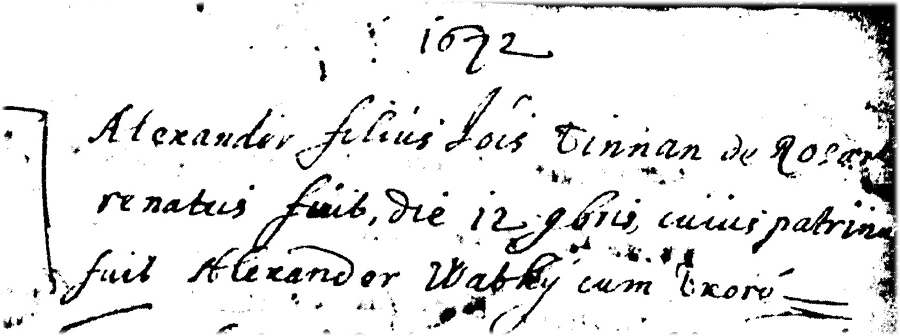 1672
Alexander filius Jois Tinnan de
renatus fuit, die 12 9bris, cuius patrinu
fuit Alexander Watky cum Uxore